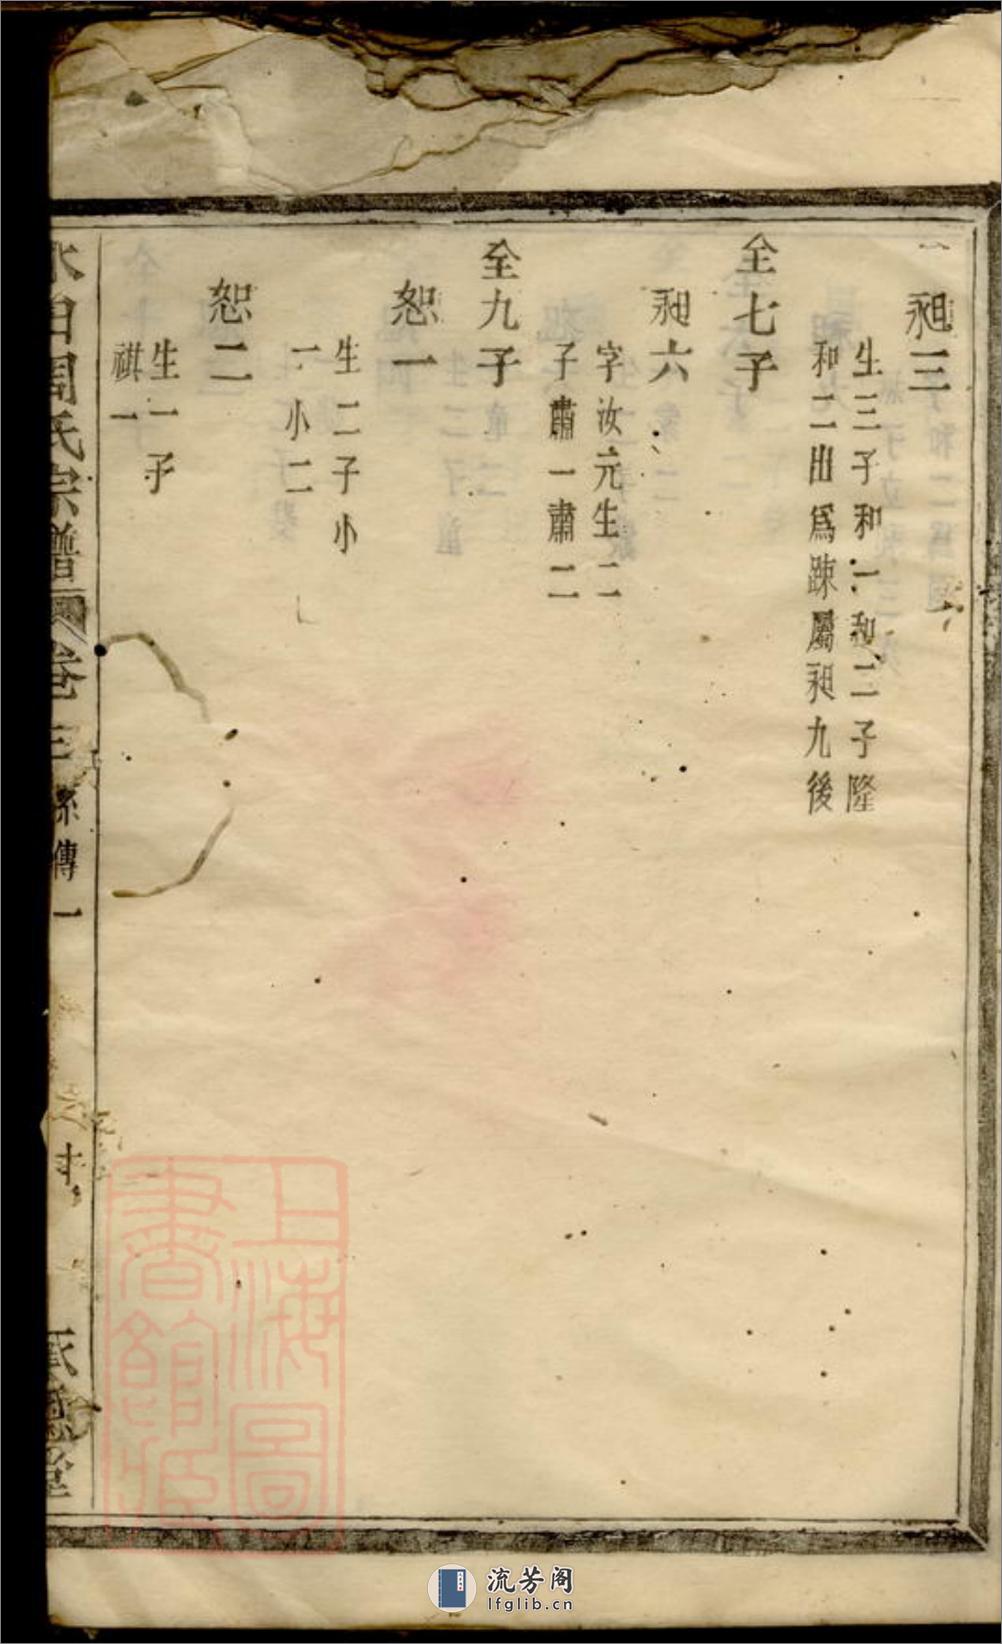 昶三
生三子和一和二子隆
和二出爲踈屬昶九後
全七子
昶六
字汝元生二
子肅一肅二
全九子
恕一
生二子小
一小二
恕二
生一子
祺一
周氏宗譜
卷三
系傳一
上海圖
書館藏
流芳阁
lfglib.cn